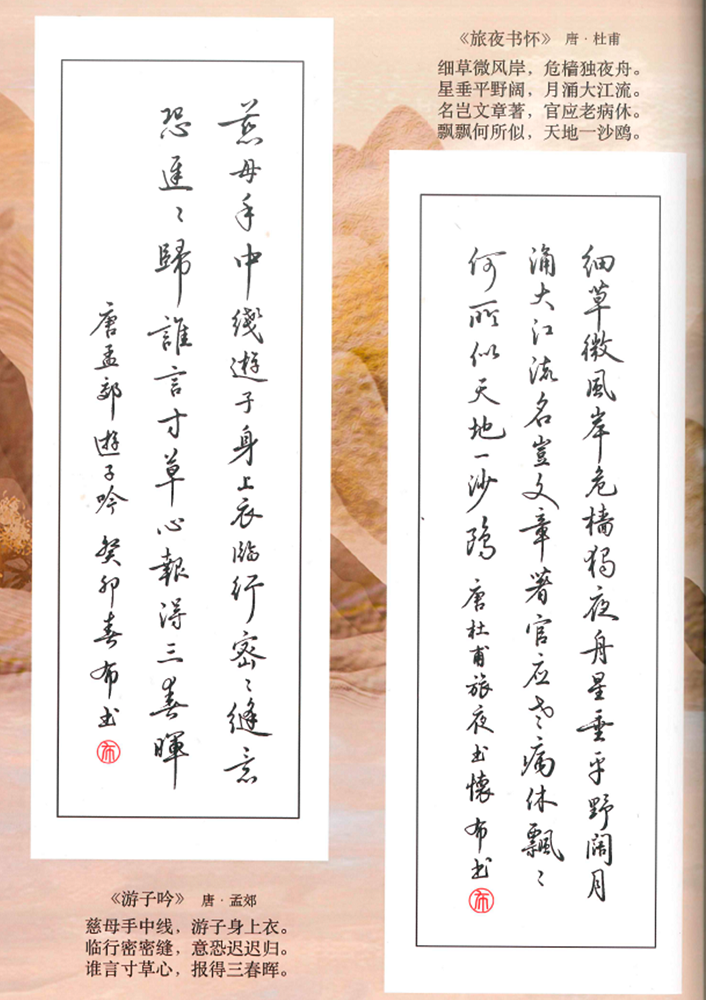 《旅夜书怀》 唐·杜甫
细草微风岸，危樯独夜舟。
星垂平野阔，月涌大江流。
名岂文章著，官应老病休。
飘飘何所似，天地一沙鸥。
慈母手中线遊子身上衣臨行密〻缝意
恐遲〻歸誰言寸草心報得三春暉
唐孟郊遊子吟 癸卯春布书
布
细草微風岸危樯獨夜舟星垂平野阔月
涌大江流名豈文章著官应老病休飄〻
何所似天地一沙鸥 唐杜甫旅夜书懷 布书
布
《游子吟》 唐·孟郊
慈母手中线，游子身上衣。
临行密密缝，意恐迟迟归。
谁言寸草心，报得三春晖。